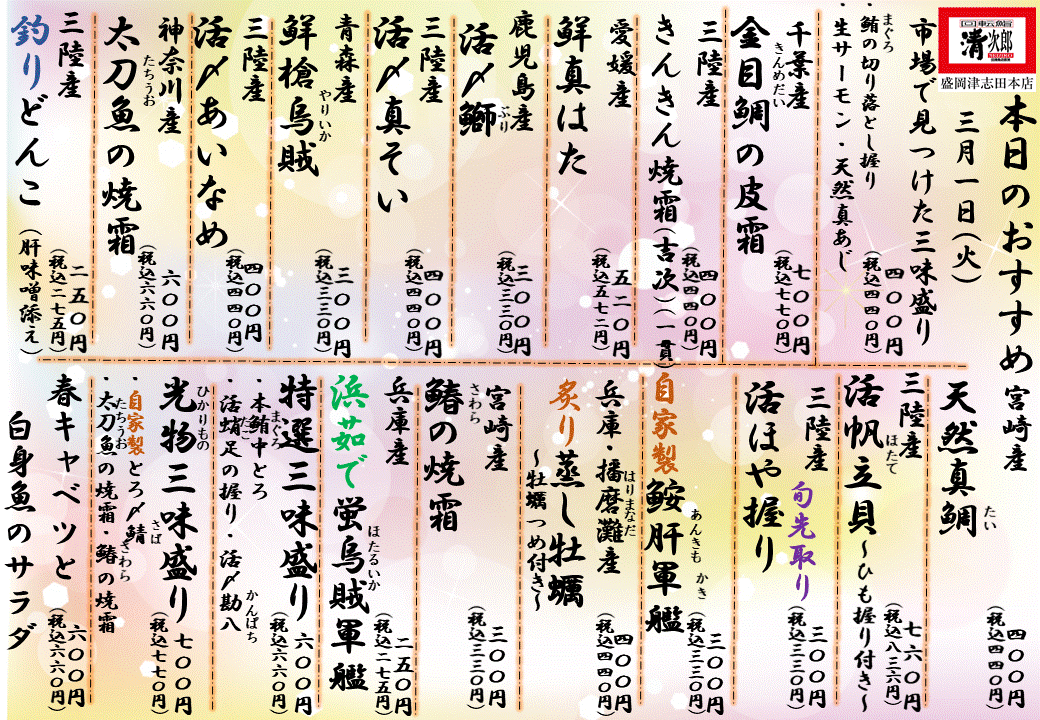 回転鮨
清次郎
盛岡津志田本店
本日のおすすめ
三月一日(火)
市場で見つけた三味盛り
・鮪の切り落とし握り
まぐろ
・生サーモン・天然真あじ
四〇〇円
(税込四四〇円)
千葉産
金目鯛の皮霜
きんめだい
七〇〇円
(税込七七〇円)
三陸産
きんきん焼霜(吉次)(一貫)
四〇〇円
(税込四四〇円)
愛媛産
鮮真はた
五二〇円
(税込五七二円)
鹿児島産
活〆鰤
ぶり
三〇〇円
(税込三三〇円)
三陸産
活〆真そい
四〇〇円
(税込四四〇円)
青森産
鮮槍烏賊
やりいか
三〇〇円
(税込三三〇円)
三陸産
活〆あいなめ
四〇〇円
(税込四四〇円)
神奈川産
太刀魚の焼霜
たちうお
六〇〇円
(税込六六〇円)
三陸産
釣りどんこ
(肝味噌添え)
二五〇円
(税込二七五円)
宮崎産
天然真鯛
たい
四〇〇円
(税込四四〇円)
三陸産
活帆立貝~ひも握り付き~
ほたて
七六〇円
(税込八三六円)
三陸産
旬先取り
活ほや握り
三〇〇円
(税込三三〇円)
自家製鮟肝軍艦
あんきも かき
三〇〇円
(税込三三〇円)
兵庫・播磨灘産
はりまなだ
炙り蒸し牡蠣
~牡蠣つめ付き~
四〇〇円
(税込四四〇円)
宮崎産
鰆の焼霜
さわら
三〇〇円
(税込三三〇円)
兵庫産
浜茹で蛍烏賊軍艦
ほたるいか
二五〇円
(税込二七五円)
特選三味盛り
・本鮪中とろ
まぐろ
・活蛸足の握り・活〆勘八
たこ
かんぱち
六〇〇円
(税込六六〇円)
光物三味盛り
ひかりもの
・自家製とろ〆鯖
さば
・太刀魚の焼霜・鰆の焼霜
たちうお
さわら
七〇〇円
(税込七七〇円)
春キャベツと
白身魚のサラダ
六〇〇円
(税込六六〇円)